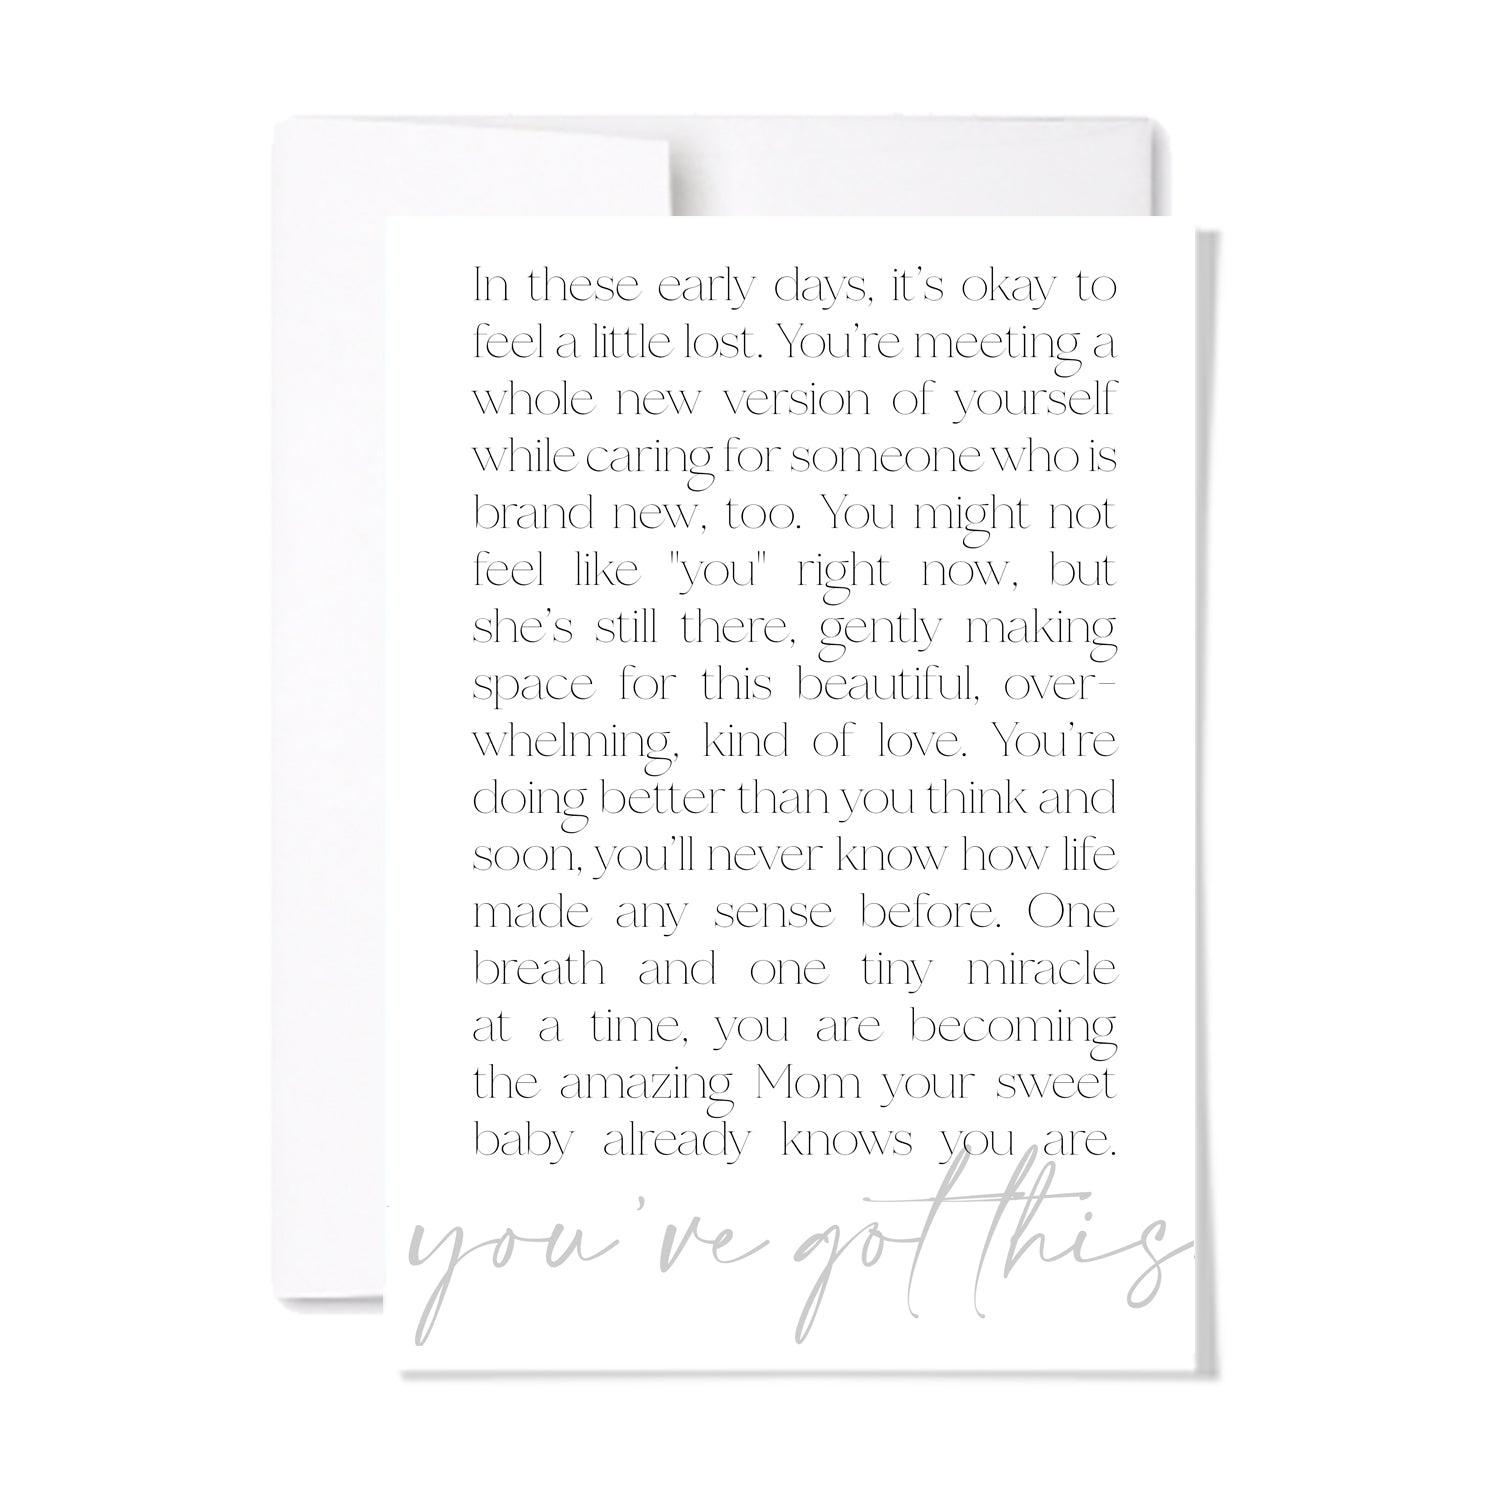 In these early days, it’s okay to
feel a little lost. You’re meeting a
whole new version of yourself
while caring for someone who is
brand new, too. You might not
feel like "you" right now, but
she’s still there, gently making
space for this beautiful, over-
whelming, kind of love. You’re
doing better than you think and
soon, you’ll never know how life
made any sense before. One
breath and one tiny miracle
at a time, you are becoming
the amazing Mom your sweet
baby already knows you are.
you’ve got this.